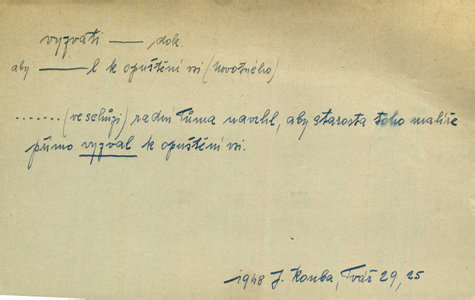 vyzvati —— dok.
aby ——l k opuštění vsi (Novotného)
....... (ve schůzi) radní Tůma navrhl, aby starosta toho malíře
přímo vyzval k opuštění vsi.
1948 J. Kouba, Tvář 29, 25